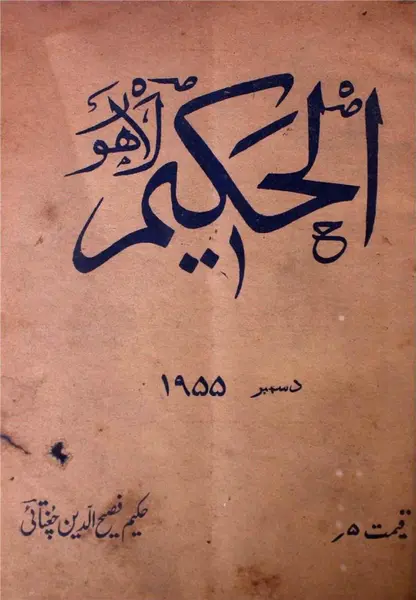 الحکیم
لاہور
دسمبر ۱۹۵۵
قیمت ۵؍
حکیم فصیح الدین چغتائی